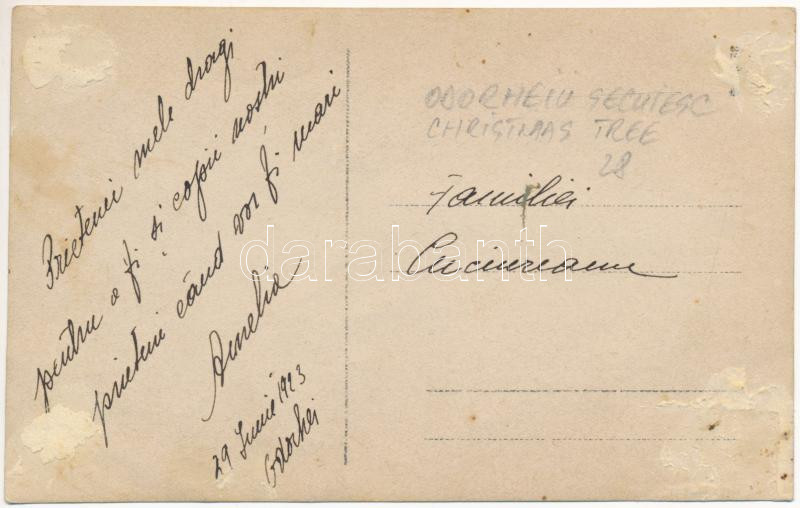 Prietenei mele dragi
pentru a fi si copii nostri
prieteni când vor fi mari
Amelia
29 Iunie 1923
Odorhei
ODORHEIU SECUIESC
CHRISTMAS TREE
28
Familiei
Cuciureanu
darabanth